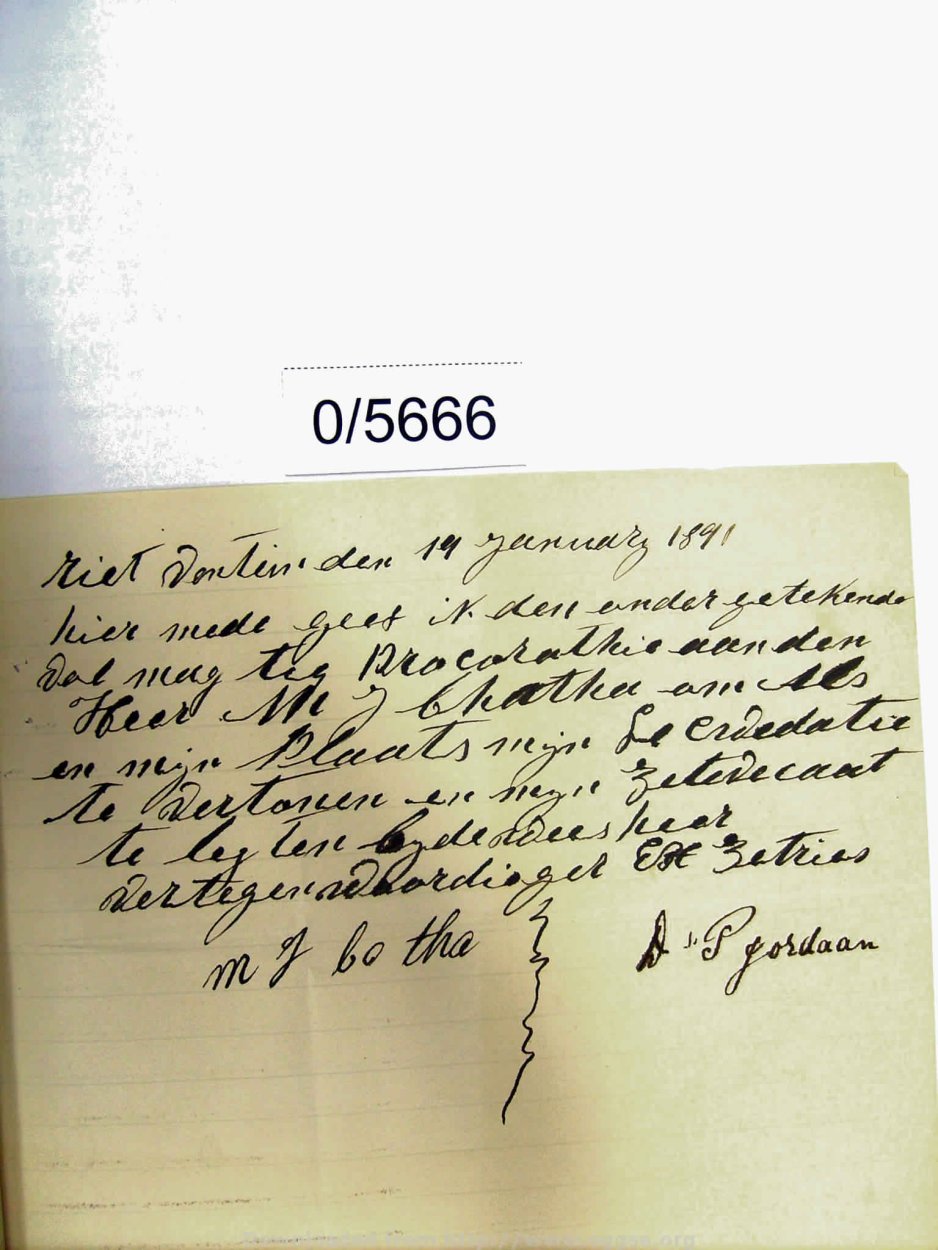 0/5666
Riet vontein den 19 January 1891
hier mede geef ik den ondergetekende
vol mag tig Procorathie aan den
Heer M J Bhatha om als
en mijn Plaats mijn
te vertonen en mijn
te leg ten by de wees heer
vertegenwoordioger
M J bo tha
D P Jordaan